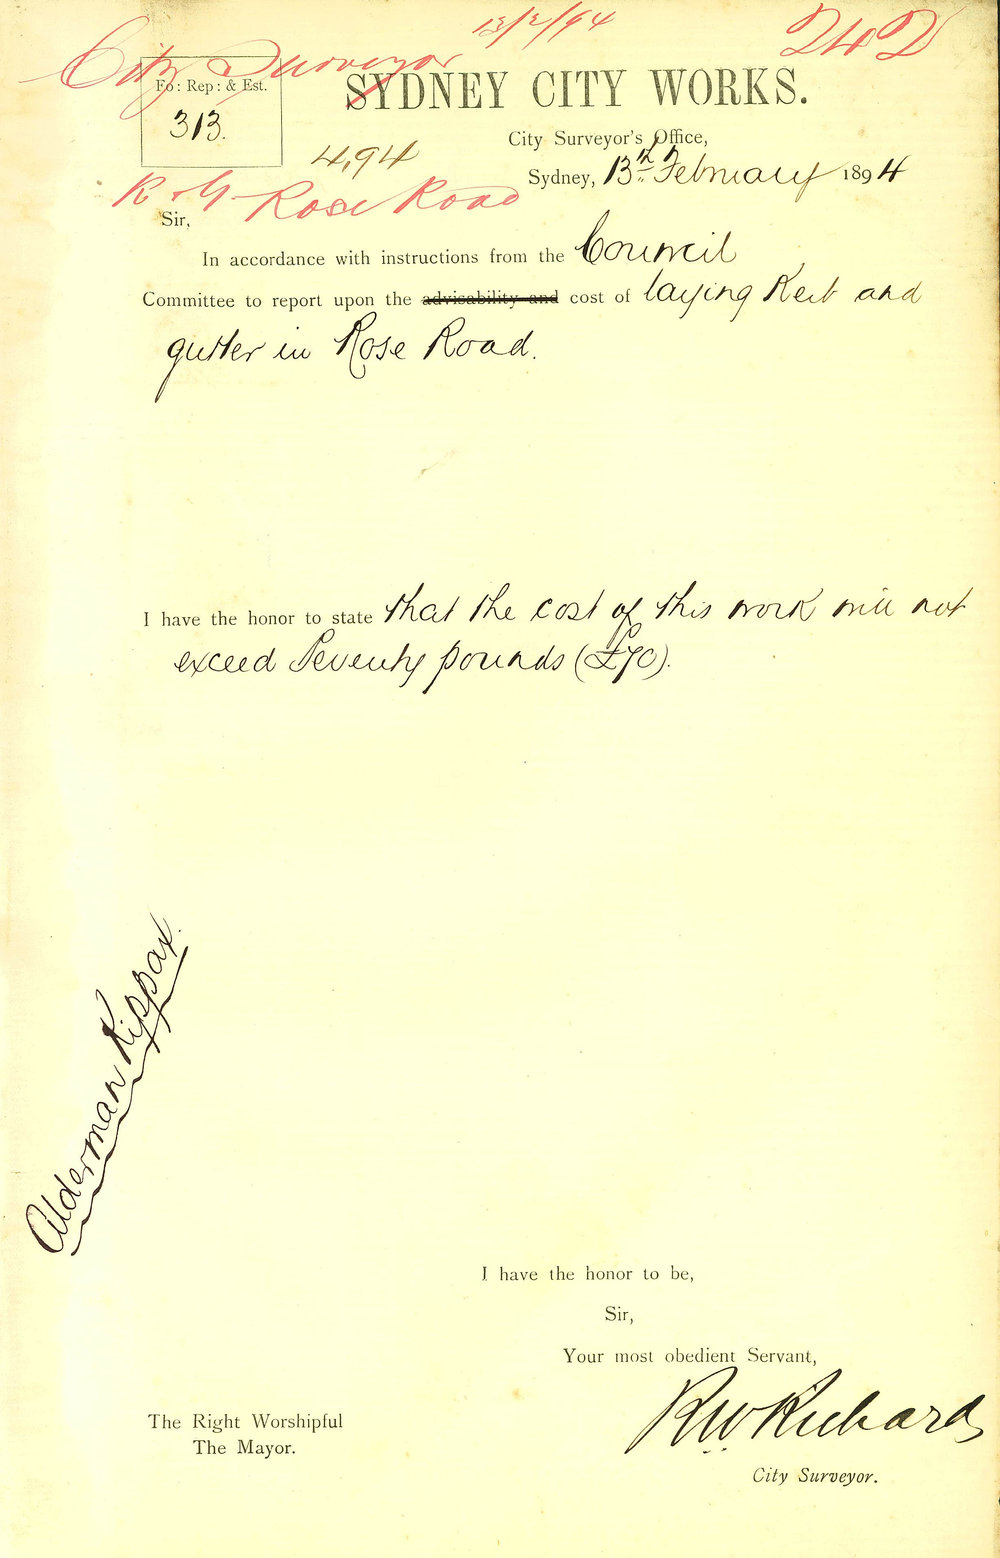 13/2/94
242
City Surveyor
Fo: Rep: & Est.
313.
SYDNEY CITY WORKS.
City Surveyor's Office,
4,94
Sydney, 13th February 1894
K & G Rose Road
Sir,
In accordance with instructions from the Council
Committee to report upon the advisability and cost of laying Kerb and
gutter in Rose Road.
I have the honor to state that the cost of this work will not
exceed Seventy pounds (£70).
Alderman Kippax.
I have the honor to be,
Sir,
Your most obedient Servant,
R W Richards
The Right Worshipful
The Mayor.
City Surveyor.